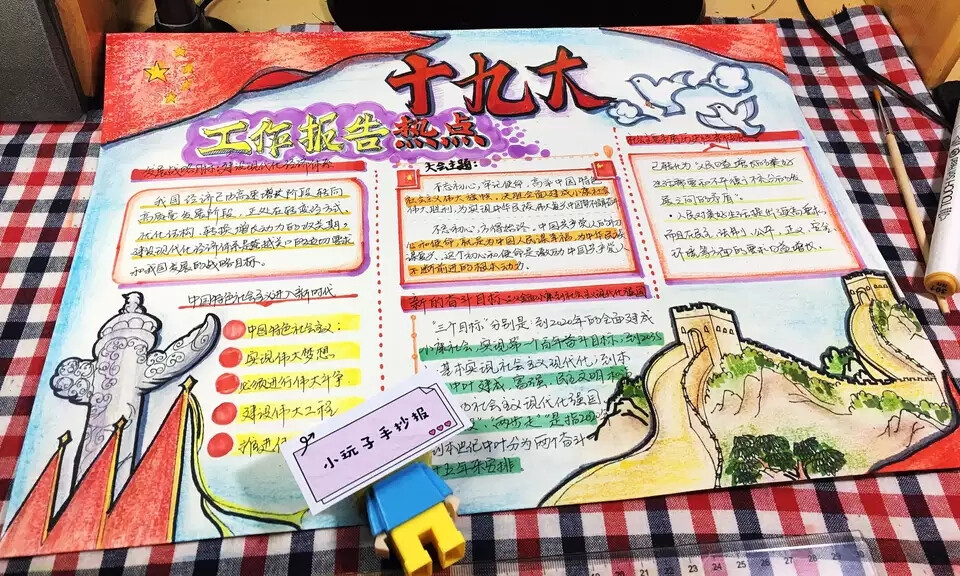 十九大
工作报告热点
我国经济已由高速增长阶段转向
高质量发展阶段，正处在转变发展方式、
建设现代化经济体系是跨越关口的迫切要求
和我国发展的战略目标。
中国特色社会主义进入新时代
中国特色社会主义：
实现伟大梦想
必须进行伟大斗争
建设伟大工程
推进
大会主题：
不忘初心，牢记使命，高举中国特色
社会主义伟大旗帜，决胜全面建成小康社会
不忘初心，方得始终。中国共产党人的初
心和使命，就是为中国人民谋幸福，为中华民族
谋复兴。这个初心和使命是激励中国共产党人
不断前进的根本动力。
新的奋斗目标
"三个目标"分别是：到2020年的全面建成
小康社会，实现第一个百年奋斗目标；到2035
基本实现社会主义现代化；到本
中叶建成富强、民主文明和
社会主义现代化强国
"两步走"是指2020
到本世纪中叶分为两个奋斗
十五年来安排
已转化为人民日益增长的美好
生活需要和不平衡不充分的发
展之间的矛盾。
人民对美好生活提出了更高要求，
而且民主、法治、公平、正义、安全、
环境等方面的要求日益增长。
小玩子手抄报